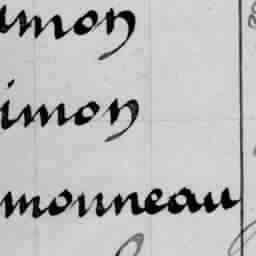 imon
imon
mouneau